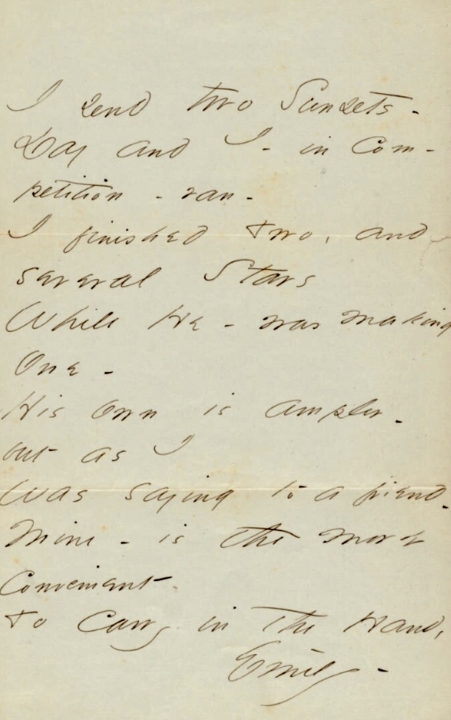 I send two Sunsets -
Day and I - in Com-
petition - ran -
I finished two, and
several Stars
While He - was making
One -
His Own is ampler -
but as I
Was saying to a friend -
Mine - is the more
Convenient
to Carry in the Hand,
Emily -